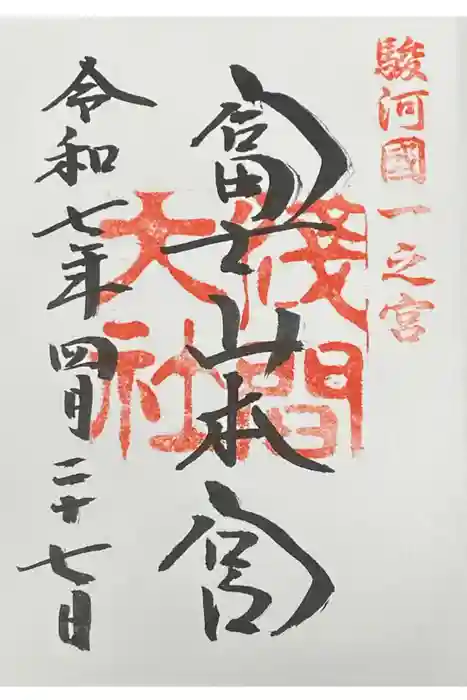 駿河國一之宮
富士山本宮
淺間
大社
令和七年四月二十七日